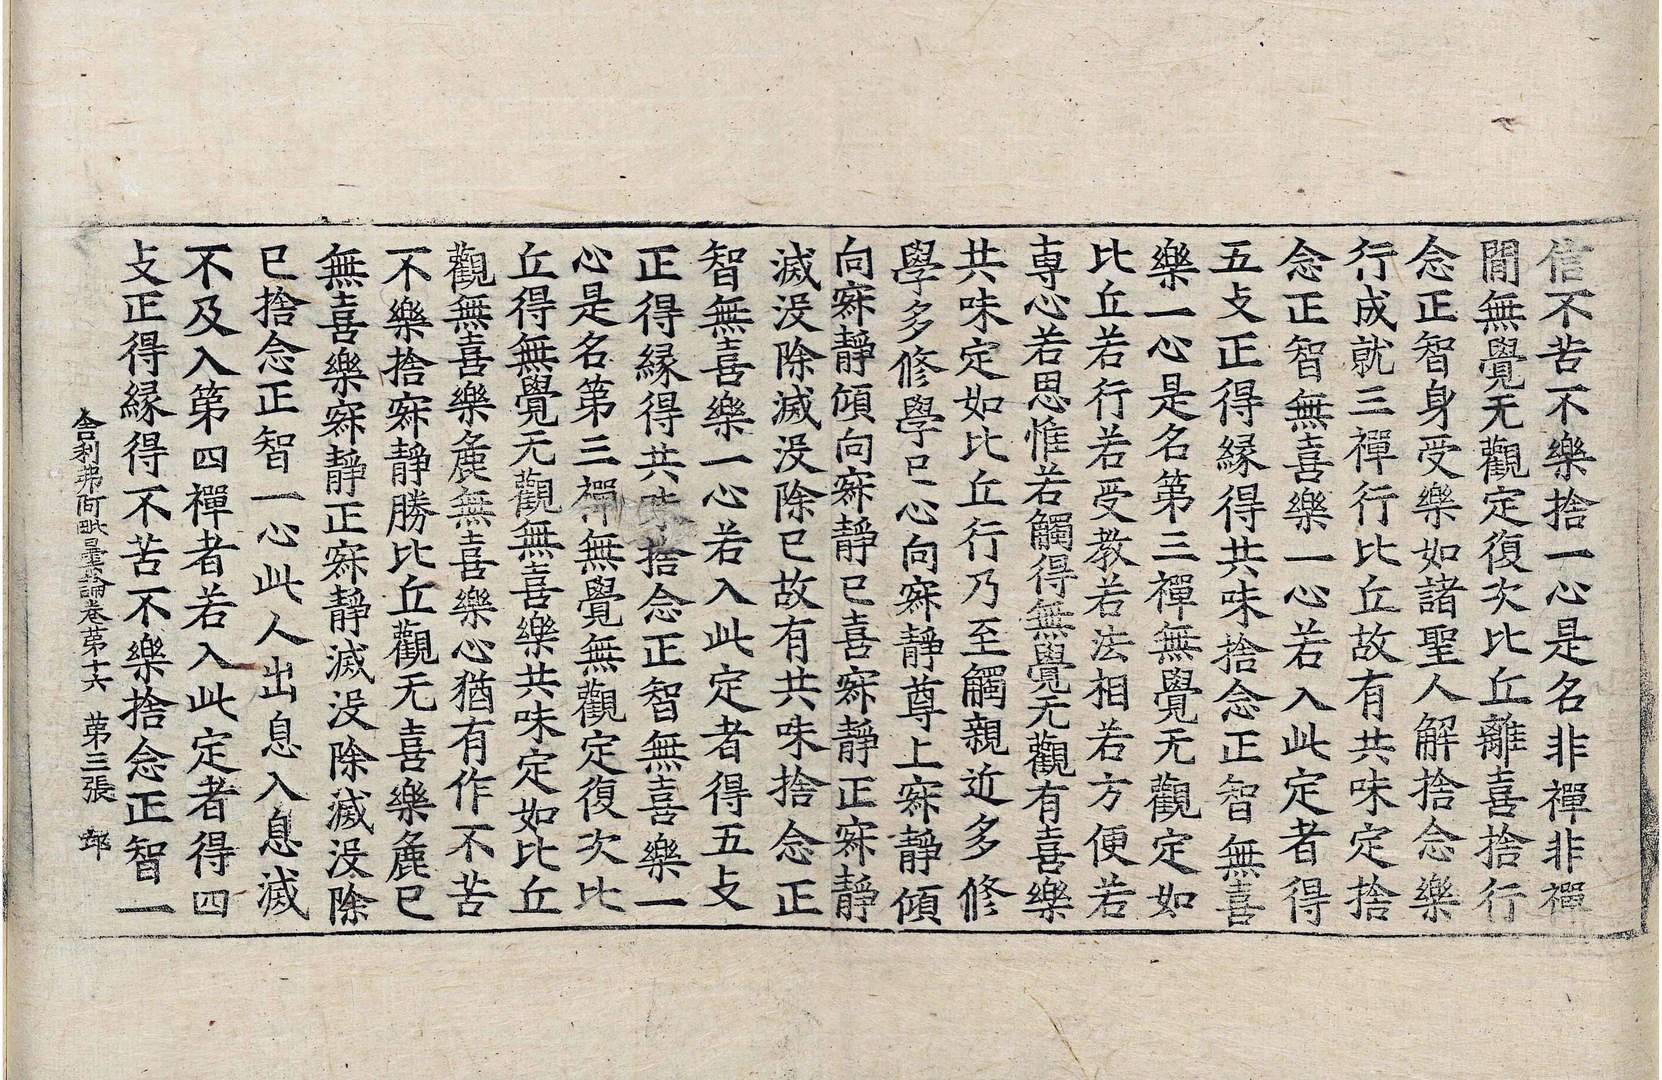 信不苦不樂捨一心是名非禪非禪
間無覺无觀定復次比丘離喜捨行
念正智身受樂如諸聖人解捨念樂
行成就三禪行比丘故有共味定捨
念正智無喜樂一心若入此定者得
五攴正得縁得共味捨念正智無喜
樂一心是名第三禪無覺无觀定如
比丘若行若受教若法相若方便若
専心若思惟若觸得無覺无觀有喜樂
共味定如比丘行乃至觸親近多修
學多修學已心向寂靜尊上寂靜傾
向寂靜傾向寂靜已喜寂靜正寂靜
滅没除滅没除已故有共味捨念正
智無喜樂一心若入此定者得五攴
正得縁得共味捨念正智無喜樂一
心是名第三禪無覺無觀定復次比
丘得無覺无觀無喜樂共味定如比丘
觀無喜樂麁無喜樂心猶有作不苦
不樂捨寂靜勝比丘觀无喜樂麁已
無喜樂寂靜正寂靜滅没除滅没除
已捨念正智一心此人出息入息滅
不及入第四禪者若入此定者得四
攴正得縁得不苦不樂捨念正智一
舍利弗阿毗曇論卷第十六 第三張